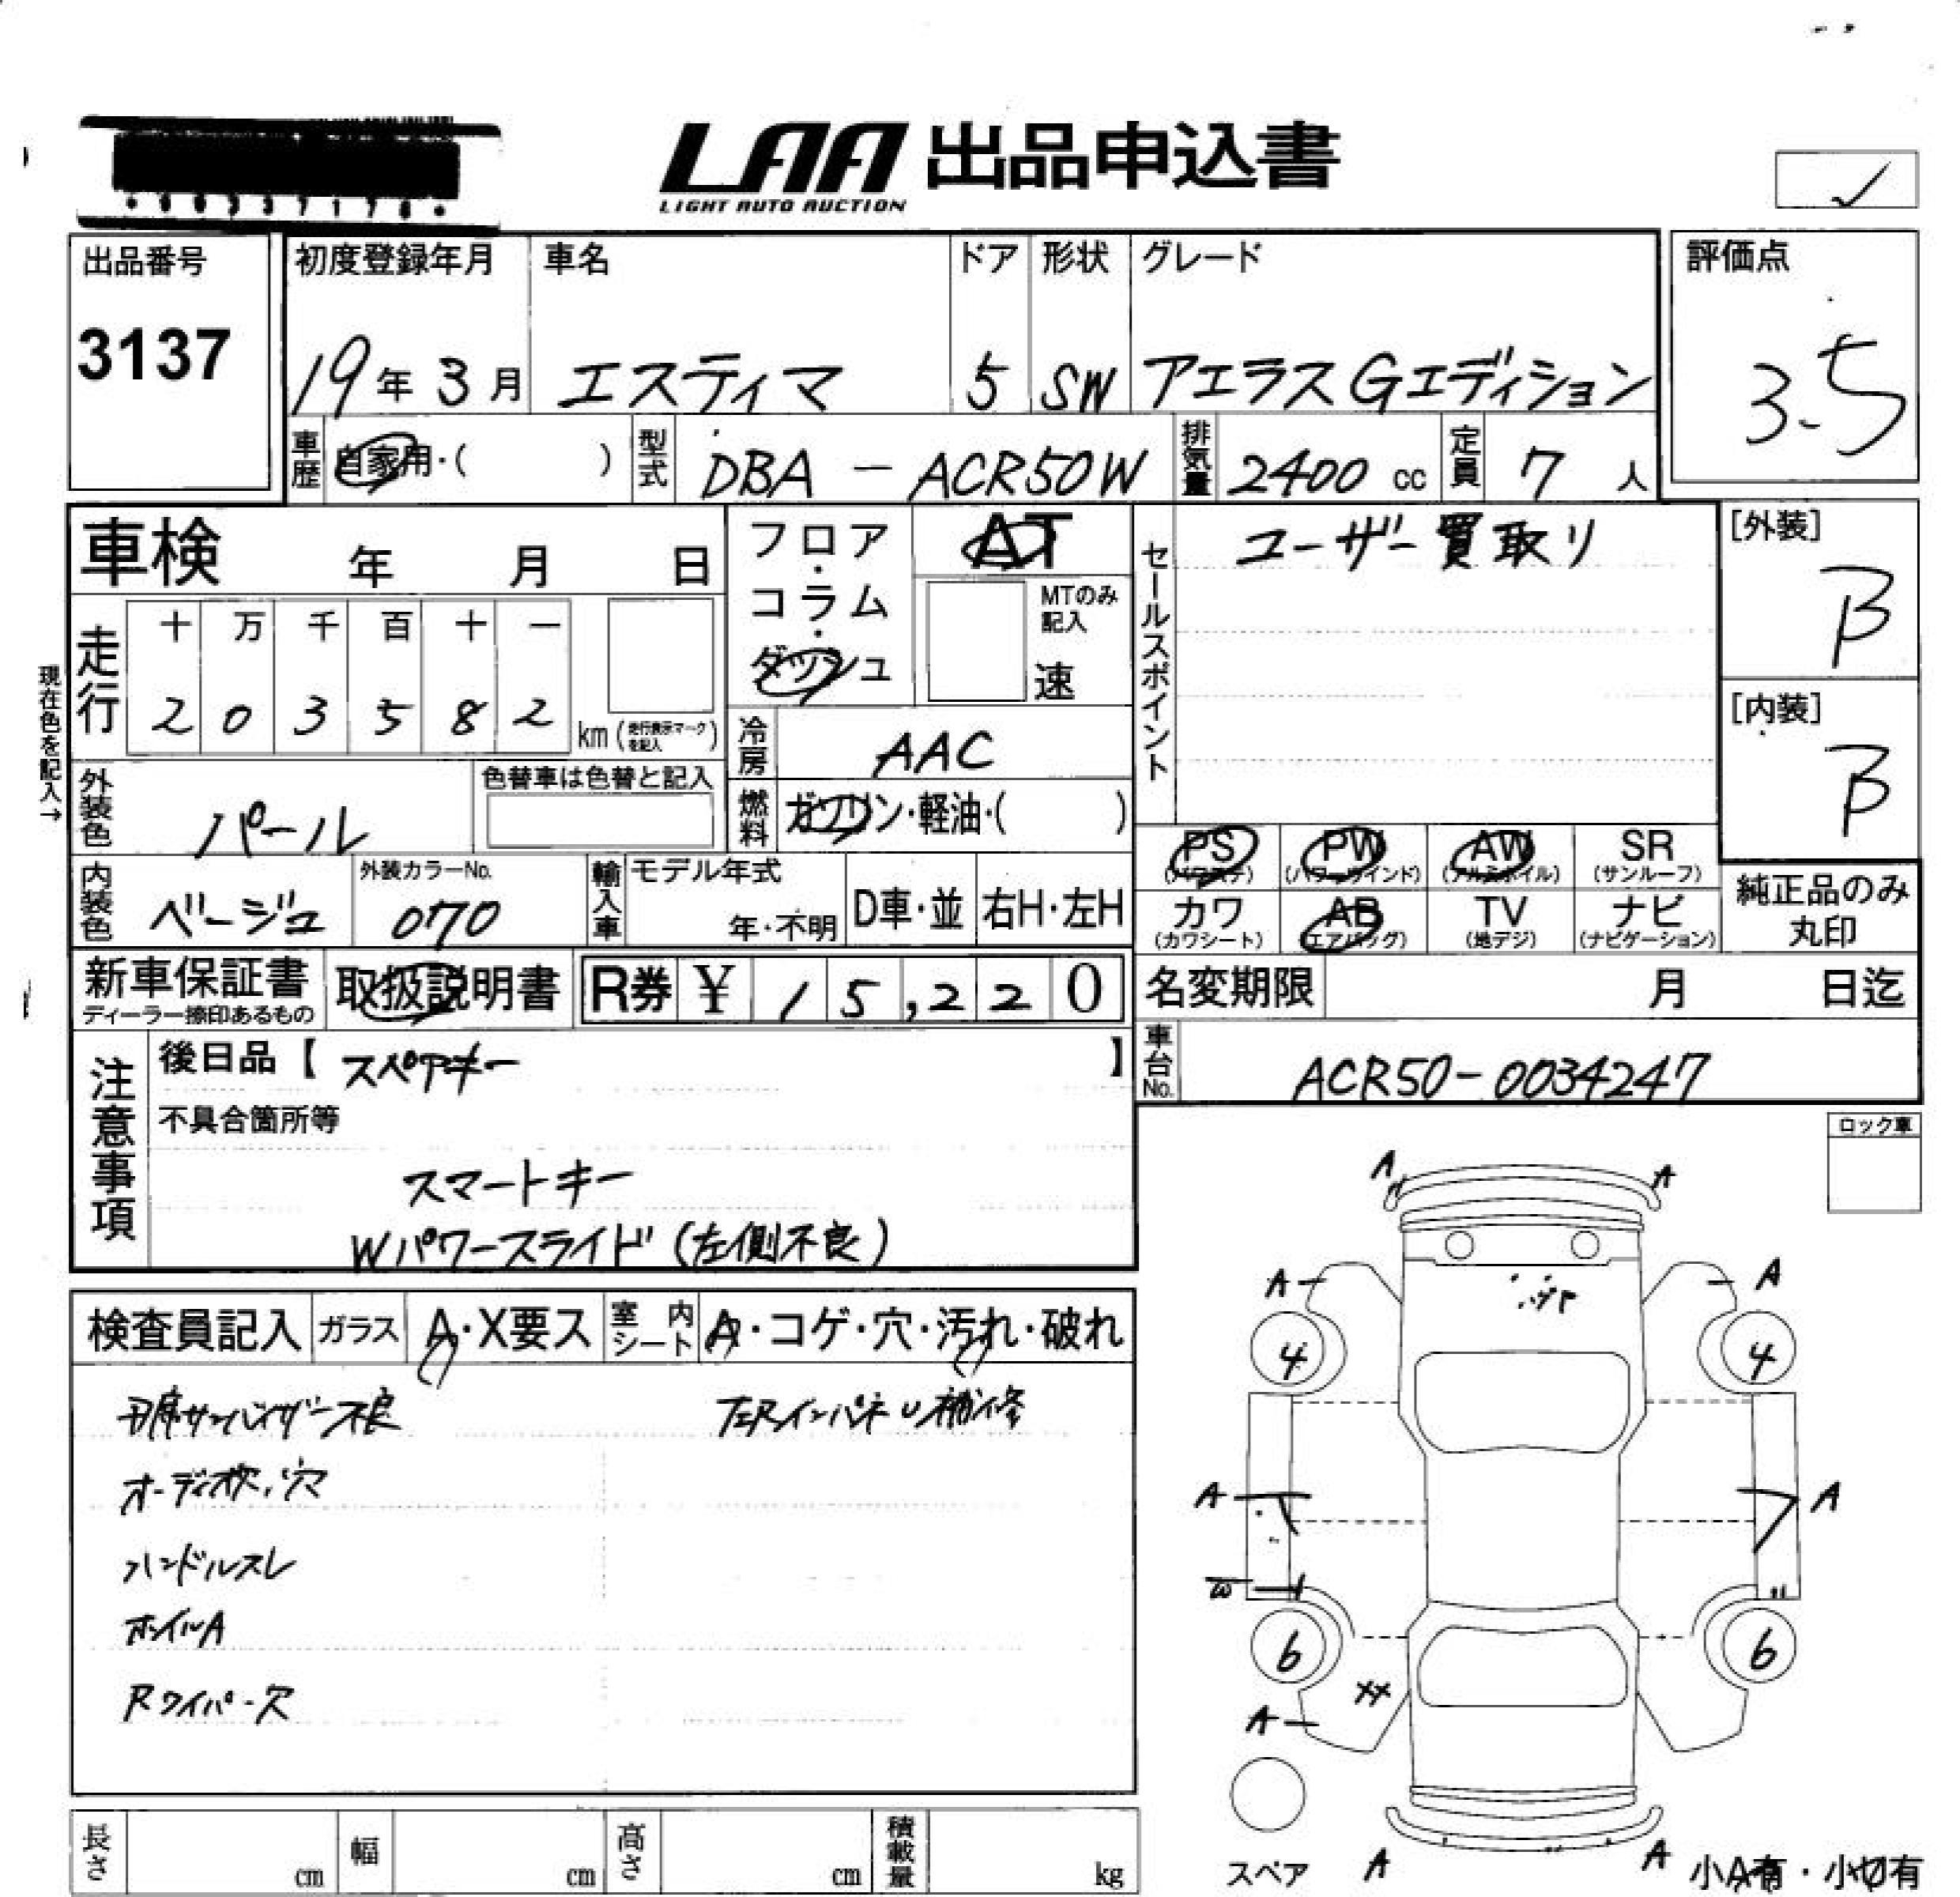 LAA 出品申込書
LIGHT AUTO AUCTION
✓
出品番号
3137
初度登録年月
19年3月
車名
エスティマ
ドア
5
形状
SW
グレード
アエラス Gエディション
評価点
3.5
車歴
自家用・( )
型式
DBA - ACR50W
排気量
2400 cc
定員
7 人
車検 年 月 日
フロア・コラム・ダッシュ
AT
MTのみ記入
速
セールスポイント
ユーザー買取り
[外装]
B
[内装]
B
現在色を記入→
走行
十 万 千 百 十 一
2 0 3 5 8 2
km(走行表示マークを記入)
冷房
AAC
外装色
パール
色替車は色替と記入
燃料
ガソリン・軽油・( )
PS
(パワステ)
PW
(パワーウインド)
AW
(アルミホイル)
SR
(サンルーフ)
内装色
ベージュ
外装カラーNo.
070
輸入車
モデル年式
年・不明
D車・並
右H・左H
カワ
(カワシート)
AB
(エアバッグ)
TV
(地デジ)
ナビ
(ナビゲーション)
純正品のみ
丸印
新車保証書
ディーラー捺印あるもの
取扱説明書
R券 ¥ 15,220
名変期限 月 日迄
注意事項
後日品【スペアキー】
車台No.
ACR50-0034247
不具合箇所等
スマートキー
Wパワースライド(左側不良)
ロック車
検査員記入
ガラス
A・X要ス
室内シート
A・コゲ・穴・汚れ・破れ
サンバイザー不良
補修
オーディオ欠、穴
ハンドルスレ
ホイルA
Rワイパー欠
A A
A A
4 4
A A
W
6 6
XX
A
スペア
A A
小A有・小U有
長さ cm
幅 cm
高さ cm
積載量 kg